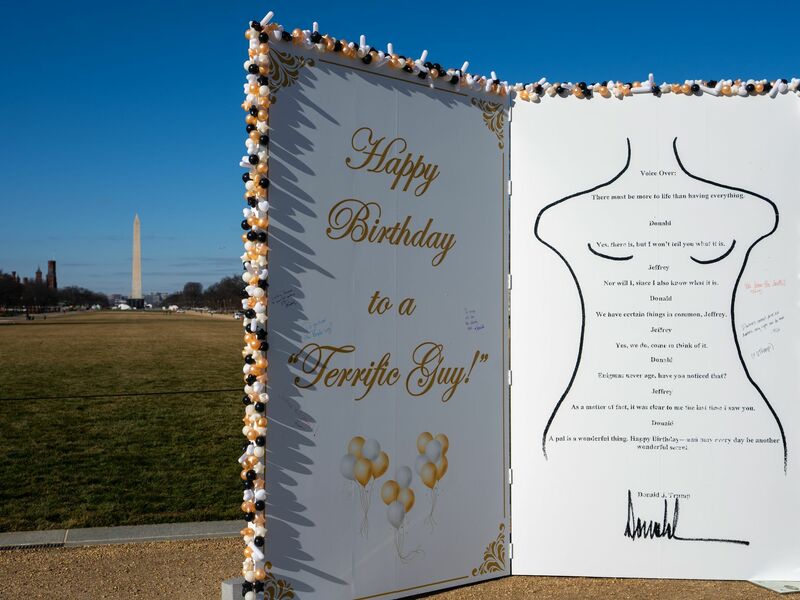 Happy
Birthday
to a
"Terrific Guy!"
Voice Over:
There must be more to life than having everything.
Donald
Yes, there is, but I won't tell you what it is.
Jeffrey
Nor will I, since I also know what it is.
Donald
We have certain things in common, Jeffrey.
Jeffrey
Yes, we do, come to think of it.
Donald
Enigmas never age, have you noticed that?
Jeffrey
As a matter of fact, it was clear to me the last time I saw you.
Donald
A pal is a wonderful thing. Happy Birthday— and may every day be another
wonderful secret.
Donald J. Trump
Donald